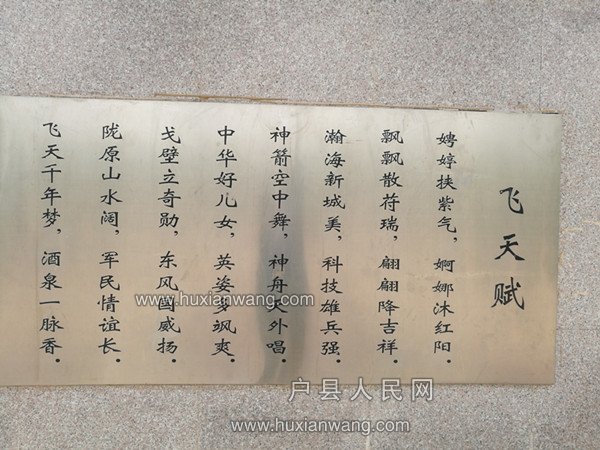 飞天赋
娉婷扶紫气，婀娜沐红阳.
飘飘散苻瑞，翩翩降吉祥.
瀚海新城美，科技雄兵强.
神箭空中舞，神舟天外唱.
中华好儿女，英姿多飒爽.
戈壁立奇勋，东风国威扬.
陇原山水阔，军民情谊长.
飞天千年梦，酒泉一脉香.
www.huxianwang.com
www.huxianwang.com
户县人民网
www.huxianwang.com